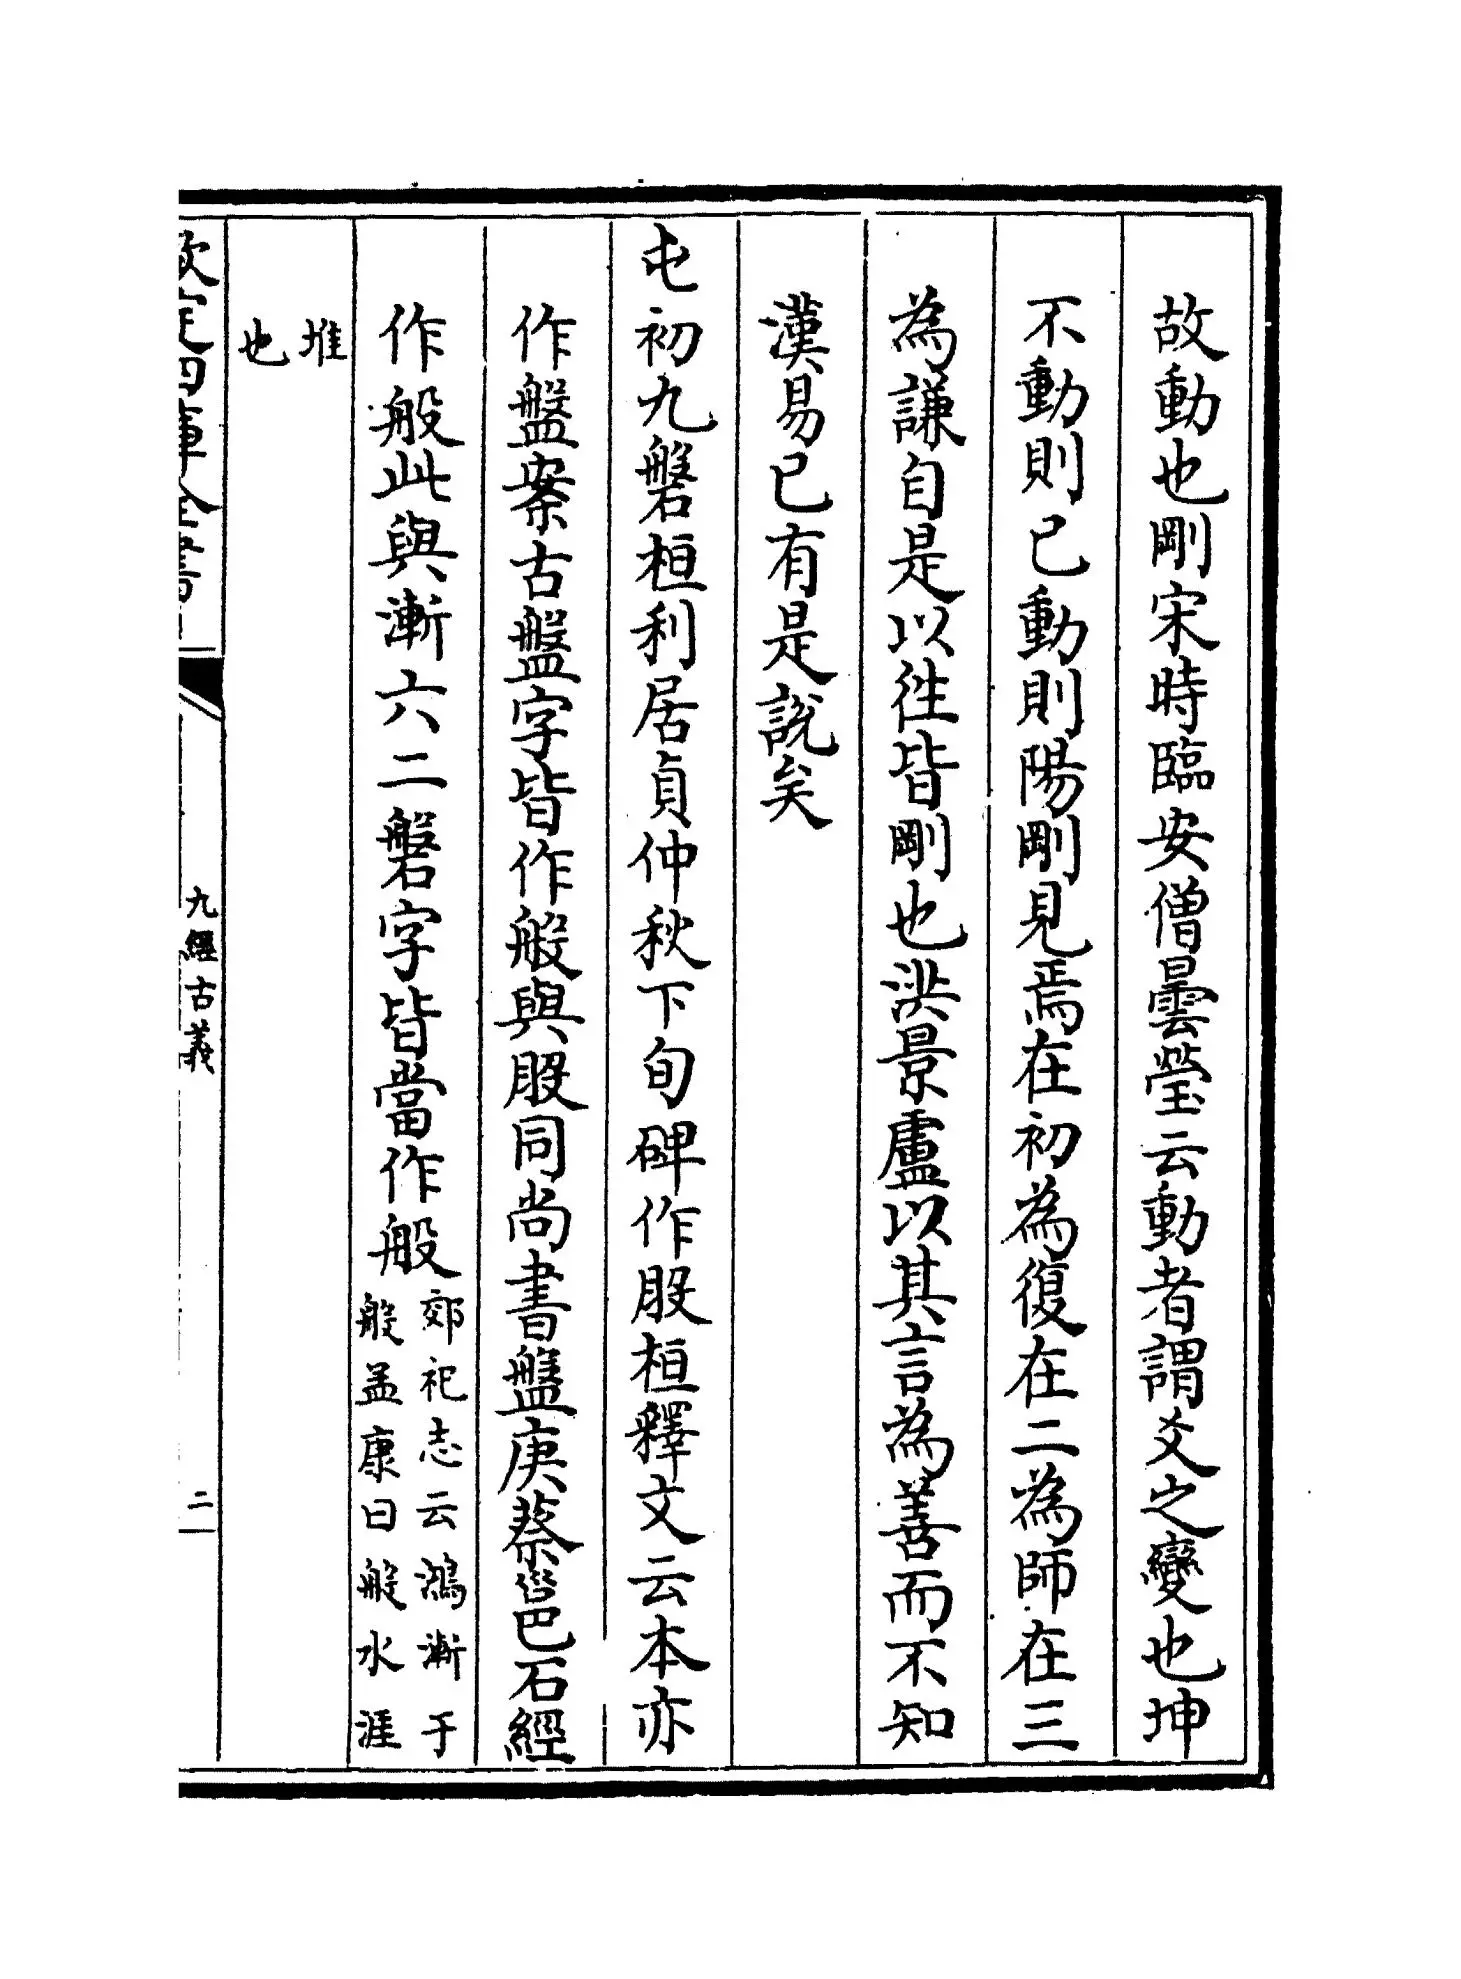 故動也剛宋時臨安僧曇瑩云動者謂爻之變也坤
不動則已動則陽剛見焉在初為復在二為師在三
為謙自是以徃皆剛也洪景盧以其言為善而不知
漢易已有是說矣
屯初九磐桓利居貞仲秋下旬碑作股桓釋文云本亦
作盤案古盤字皆作般與股同尚書盤庚蔡邕石經
作般此與漸六二磐字皆當作般
郊祀志云鴻漸于
般孟康曰般水涯
堆
也
欽定四庫全書
九經古義
二